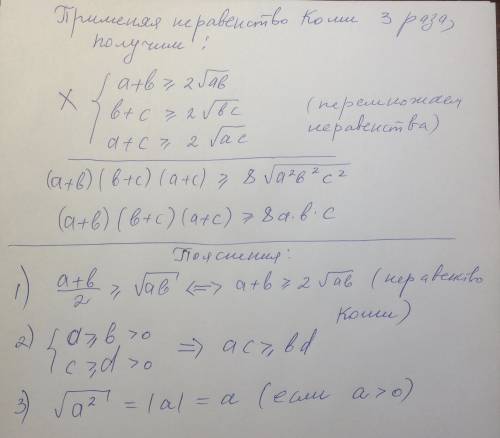 Применяя неравенство Коши 3 раза,
получим:
× { a+b ≥ 2√ab
b+c ≥ 2√bc (перемножаем
a+c ≥ 2√ac неравенства)
(a+b)(b+c)(a+c) ≥ 8√a²b²c²
(a+b)(b+c)(a+c) ≥ 8a·b·c
Пояснения:
1) a+b/2 ≥ √ab <=> a+b ≥ 2√ab (неравенство
Коши)
2) { a ≥ b > 0
c ≥ d > 0 => ac ≥ bd
3) √a² = |a| = a (если a>0)